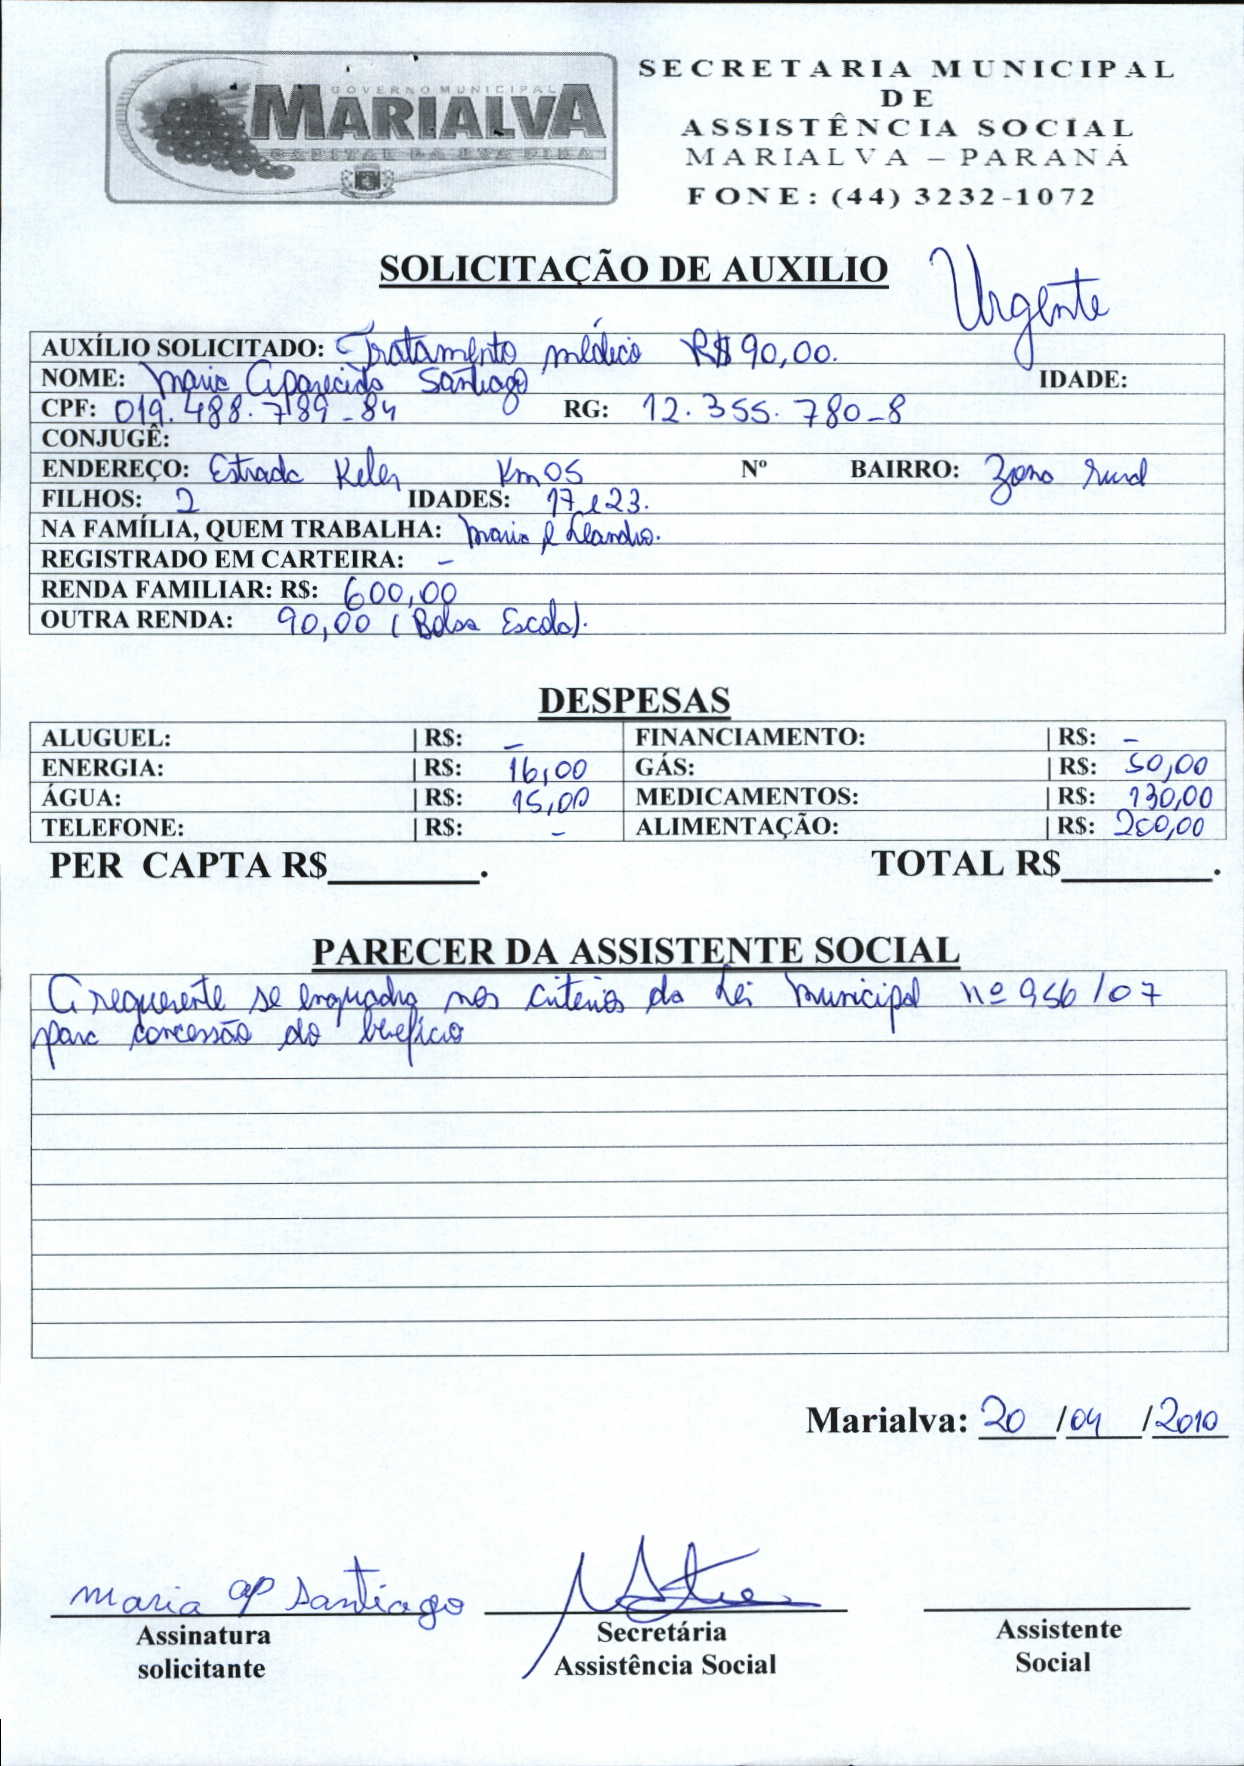 GOVERNO MUNICIPAL
MARIALVA
CAPITAL DA UVA FINA
SECRETARIA MUNICIPAL
DE
ASSISTÊNCIA SOCIAL
MARIALVA – PARANÁ
FONE: (44) 3232-1072
SOLICITAÇÃO DE AUXILIO
Urgente
AUXÍLIO SOLICITADO: Tratamento médico R$ 90,00.
NOME: Maria Aparecida Santiago IDADE:
CPF: 019.488.789-84 RG: 12.355.780-8
CONJUGÊ:
ENDEREÇO: Estrada Keler Km 05 Nº BAIRRO: Zona Rural
FILHOS: 2 IDADES: 17 e 23.
NA FAMÍLIA, QUEM TRABALHA: Maria e Leandro.
REGISTRADO EM CARTEIRA: -
RENDA FAMILIAR: R$: 600,00
OUTRA RENDA: 90,00 (Bolsa Escola).
DESPESAS
ALUGUEL: | R$: - FINANCIAMENTO: | R$: -
ENERGIA: | R$: 16,00 GÁS: | R$: 50,00
ÁGUA: | R$: 15,00 MEDICAMENTOS: | R$: 130,00
TELEFONE: | R$: - ALIMENTAÇÃO: | R$: 200,00
PER CAPTA R$________. TOTAL R$________.
PARECER DA ASSISTENTE SOCIAL
A requerente se enquadra nos criterios da Lei Municipal nº 956/07
para concessão do benefício
Marialva: 20/04/2010
Maria Ap Santiago
Assinatura Secretária Assistente
solicitante Assistência Social Social